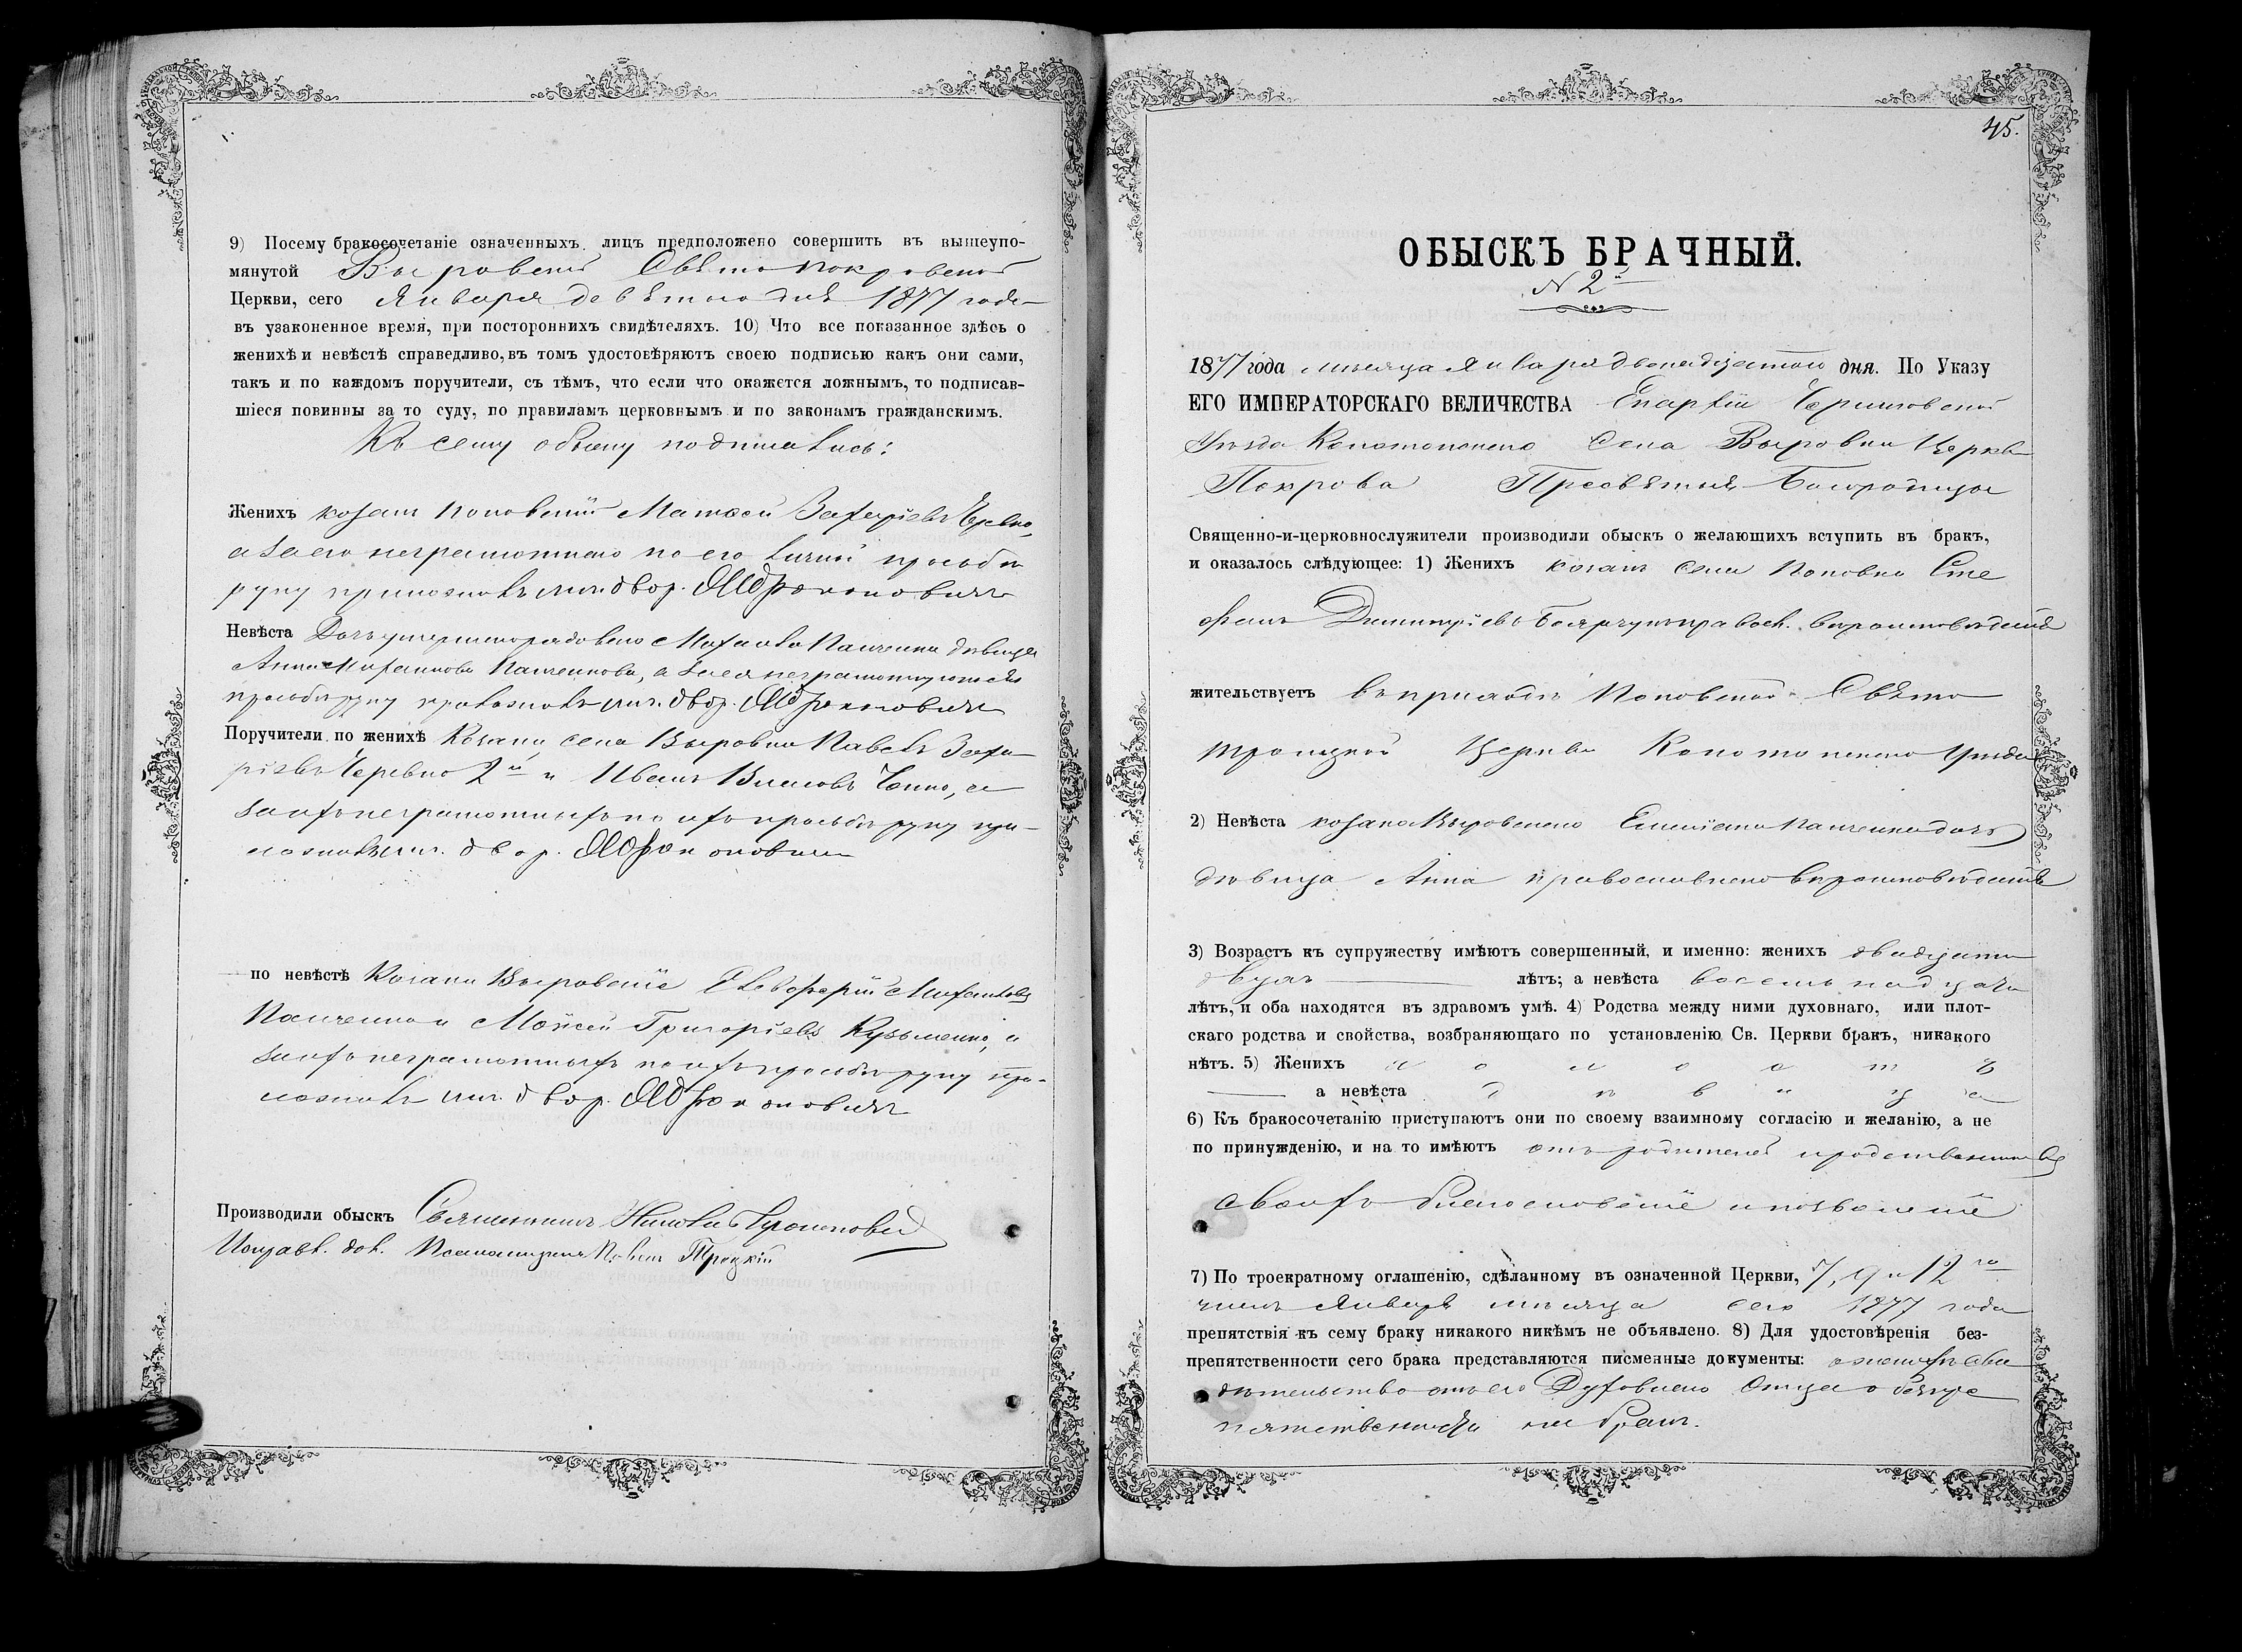 9) Посему бракосочетаніе означенныхъ лицъ предположено совершить въ вышеупо-
мянутой Выровской Свято Покровской
Церкви, сего Января девятого дня 1877 года
въ узаконенное время, при постороннихъ свидѣтеляхъ. 10) Что все показанное здѣсь о
женихѣ и невѣстѣ справедливо, въ томъ удостовѣряютъ своею подписью какъ они сами,
такъ и по каждомъ поручители, съ тѣмъ, что если что окажется ложнымъ, то подписав-
шіеся повинны за то суду, по правиламъ церковнымъ и по законамъ гражданскимъ.
Къ сему обыску подписались:
Женихъ козакъ Поповскій Матвей Захаріевъ
а за его неграмотнаго по его личной прозьбѣ
руку приложилъ двор.
Невѣста Дочь умершого рядового Михаила Панченка дѣвица
Анна Михаилова Панченкова, а за ея неграмотную
прозьбѣ руку приложилъ двор.
Поручители по женихѣ Козаки села Выровки Павелъ Заха-
ріевъ Черевко 2й и Иванъ Власовъ а
за ихъ неграмотныхъ по ихъ прозьбѣ руку при-
ложилъ двор.
по невѣстѣ Козаки Выровскіе Елевферій Михаиловъ
Панченко и Моисей Григоріевъ Кузьменко, а
за ихъ неграмотныхъ по ихъ прозьбѣ руку при-
ложилъ двор.
Производили обыскъ Священникъ
Исправл. дол. Псаломщика Павелъ Троцкій
45.
ОБЫСКЪ БРАЧНЫЙ.
№ 2й
1877 года мѣсяца Января двенадцатого дня. По Указу
ЕГО ИМПЕРАТОРСКАГО ВЕЛИЧЕСТВА Епархіи Черниговской
Уѣзда Конотопского Села Выровки Церкви
Покрова Пресвятыя Богородицы
Священно-и-церковнослужители производили обыскъ о желающихъ вступить въ бракъ,
и оказалось слѣдующее: 1) Женихъ козакъ села Поповки Сте
фанъ Димитріевъ правосл. вѣроисповѣданія
жительствуетъ въ приходѣ Поповской Свято
Троицкой Церкви Конотопского Уѣзда
2) Невѣста козака Выровского Емельяна Панченка дочь
дѣвица Анна православного вѣроисповѣданія
3) Возрастъ къ супружеству имѣютъ совершенный, и именно: женихъ двадцати
двухъ лѣтъ; а невѣста восемнадцати
лѣтъ, и оба находятся въ здравомъ умѣ. 4) Родства между ними духовнаго, или плот-
скаго родства и свойства, возбраняющаго по установленію Св. Церкви бракъ, никакого
нѣтъ. 5) Женихъ холостъ
а невѣста дѣвица
6) Къ бракосочетанію приступаютъ они по своему взаимному согласію и желанію, а не
по принужденію, и на то имѣютъ отъ родителей и родственниковъ
своихъ благословеніе и позволеніе
7) По троекратному оглашенію, сдѣланному въ означенной Церкви, 7, 9 и 12го
чиселъ Январь мѣсяца сего 1877 года
препятствія къ сему браку никакого никѣмъ не объявлено. 8) Для удостовѣренія без-
препятственности сего брака представляются писменные документы: о женихѣ сви
дѣтельство отъ его Духовного Отца о безпре
пятственности на бракъ.